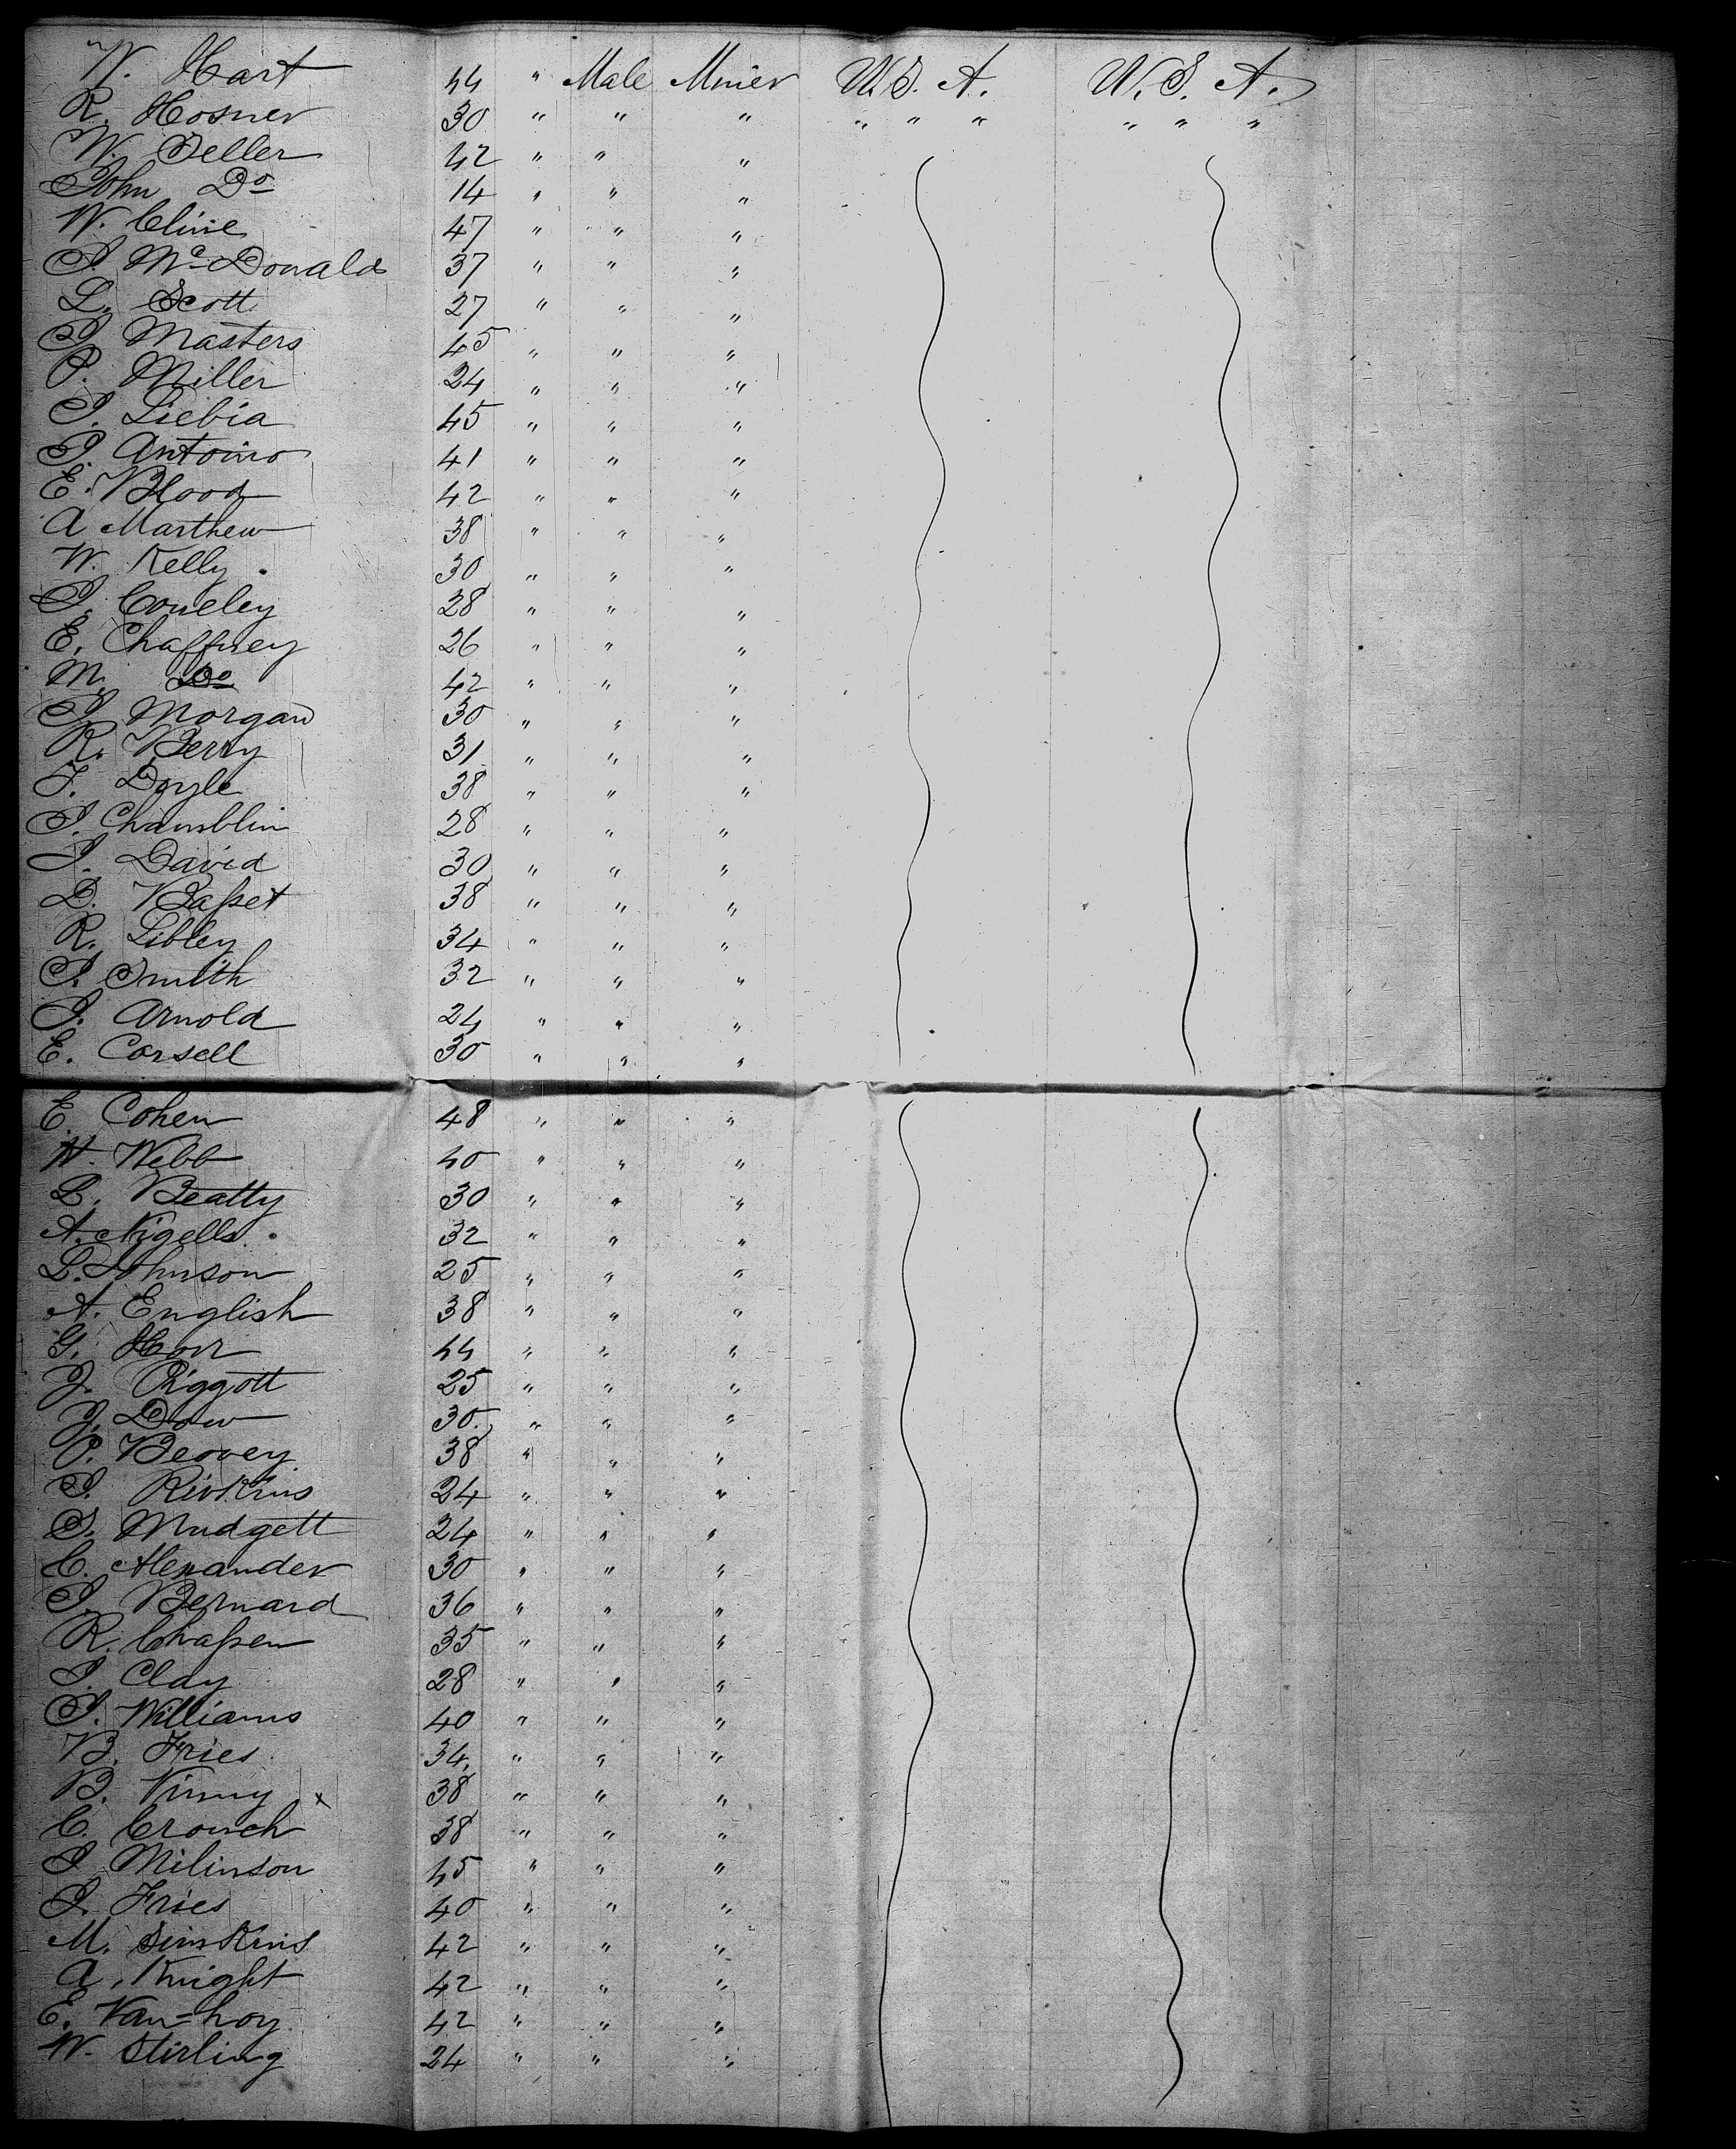 W. Hart 44 " Male Miner U.S. A. U.S. A.
R. Hosner 30 " " " " " " " " "
W. Teller 42 " " "
John Do 14 " " "
W. Cline 47 " " "
J. McDonald 37 " " "
L. Scott 27 " " "
J Masters 45 " " "
P. Miller 24 " " "
J. Liebia 45 " " "
J. Antoino 41 " " "
E. Blood 42 " " "
A Marthew 38 " " "
W. Kelly 30 " " "
J. Coneley 28 " " "
E. Chaffney 26 " " "
M. Do 42 " " "
J Morgan 30 " " "
R. Berry 31 " " "
F. Doyle 38 " " "
J. Chamblin 28 " " "
J. David 30 " " "
D. Basset 38 " " "
R. Libley 34 " " "
J. Smith 32 " " "
J. Arnold 24 " " "
E. Corsell 30 " " "
E. Cohen 48 " " "
H. Webb 40 " " "
L. Beatty 30 " " "
A. Nigells 32 " " "
L. Johnson 25 " " "
A. English 38 " " "
G. Horr 44 " " "
J. Piggott 25 " " "
J. Dow 30 " " "
P. Beovey 38 " " "
J. 24 " " "
S. Mudgett 24 " " "
C. Alexander 30 " " "
J. Bernard 36 " " "
R. Chassen 35 " " "
J. Clay 28 " " "
J. Williams 40 " " "
B. Fries 34 " " "
B. Vinny x 38 " " "
C. Crouch 38 " " "
J Milinson 45 " " "
J. Fries 40 " " "
M. Simkins 42 " " "
A. Knight 42 " " "
E. Van=hoy 42 " " "
W. Stirling 24 " " "